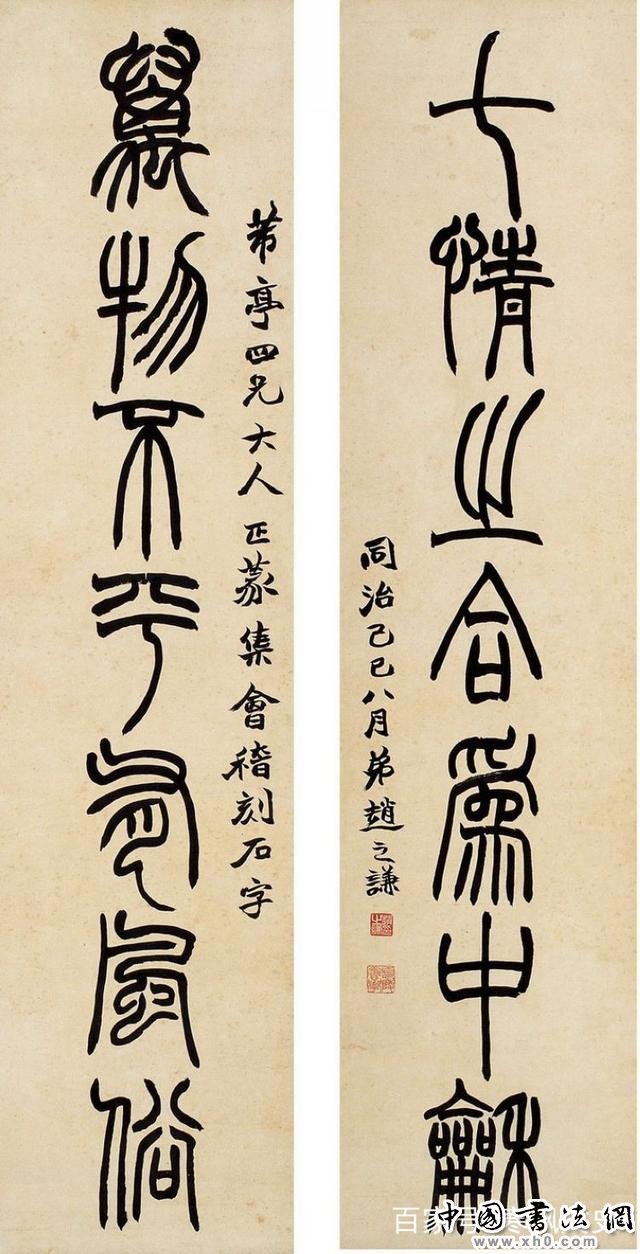 七情之合爲中龢
同治己巳八月弟趙之謙
芾亭四兄大人正篆集會稽刻石字
萬物不平有風俗
中国書法網
www.xh0.com
百家号